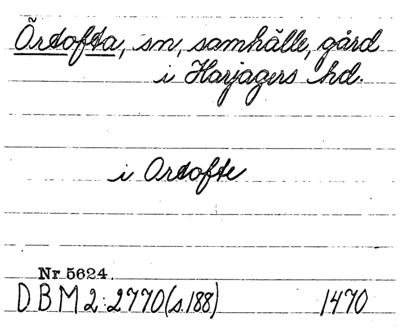 Örtofta, sn, samhälle, gård
i Harjagers hd.
i Ortofte
Nr 5624.
DBM 2:2770 (s.188) 1470